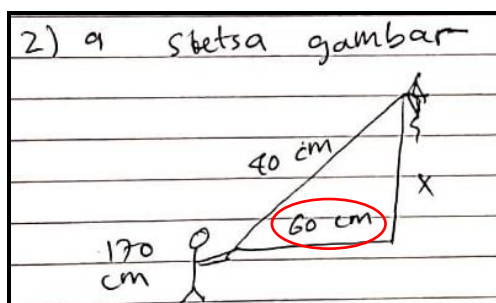 2) a sketsa gambar
40 cm
X
60 cm
170
cm